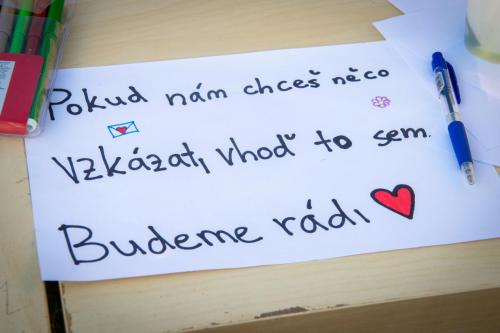 Pokud nám chceš něco
Vzkázat, vhoď to sem.
Budeme rádi